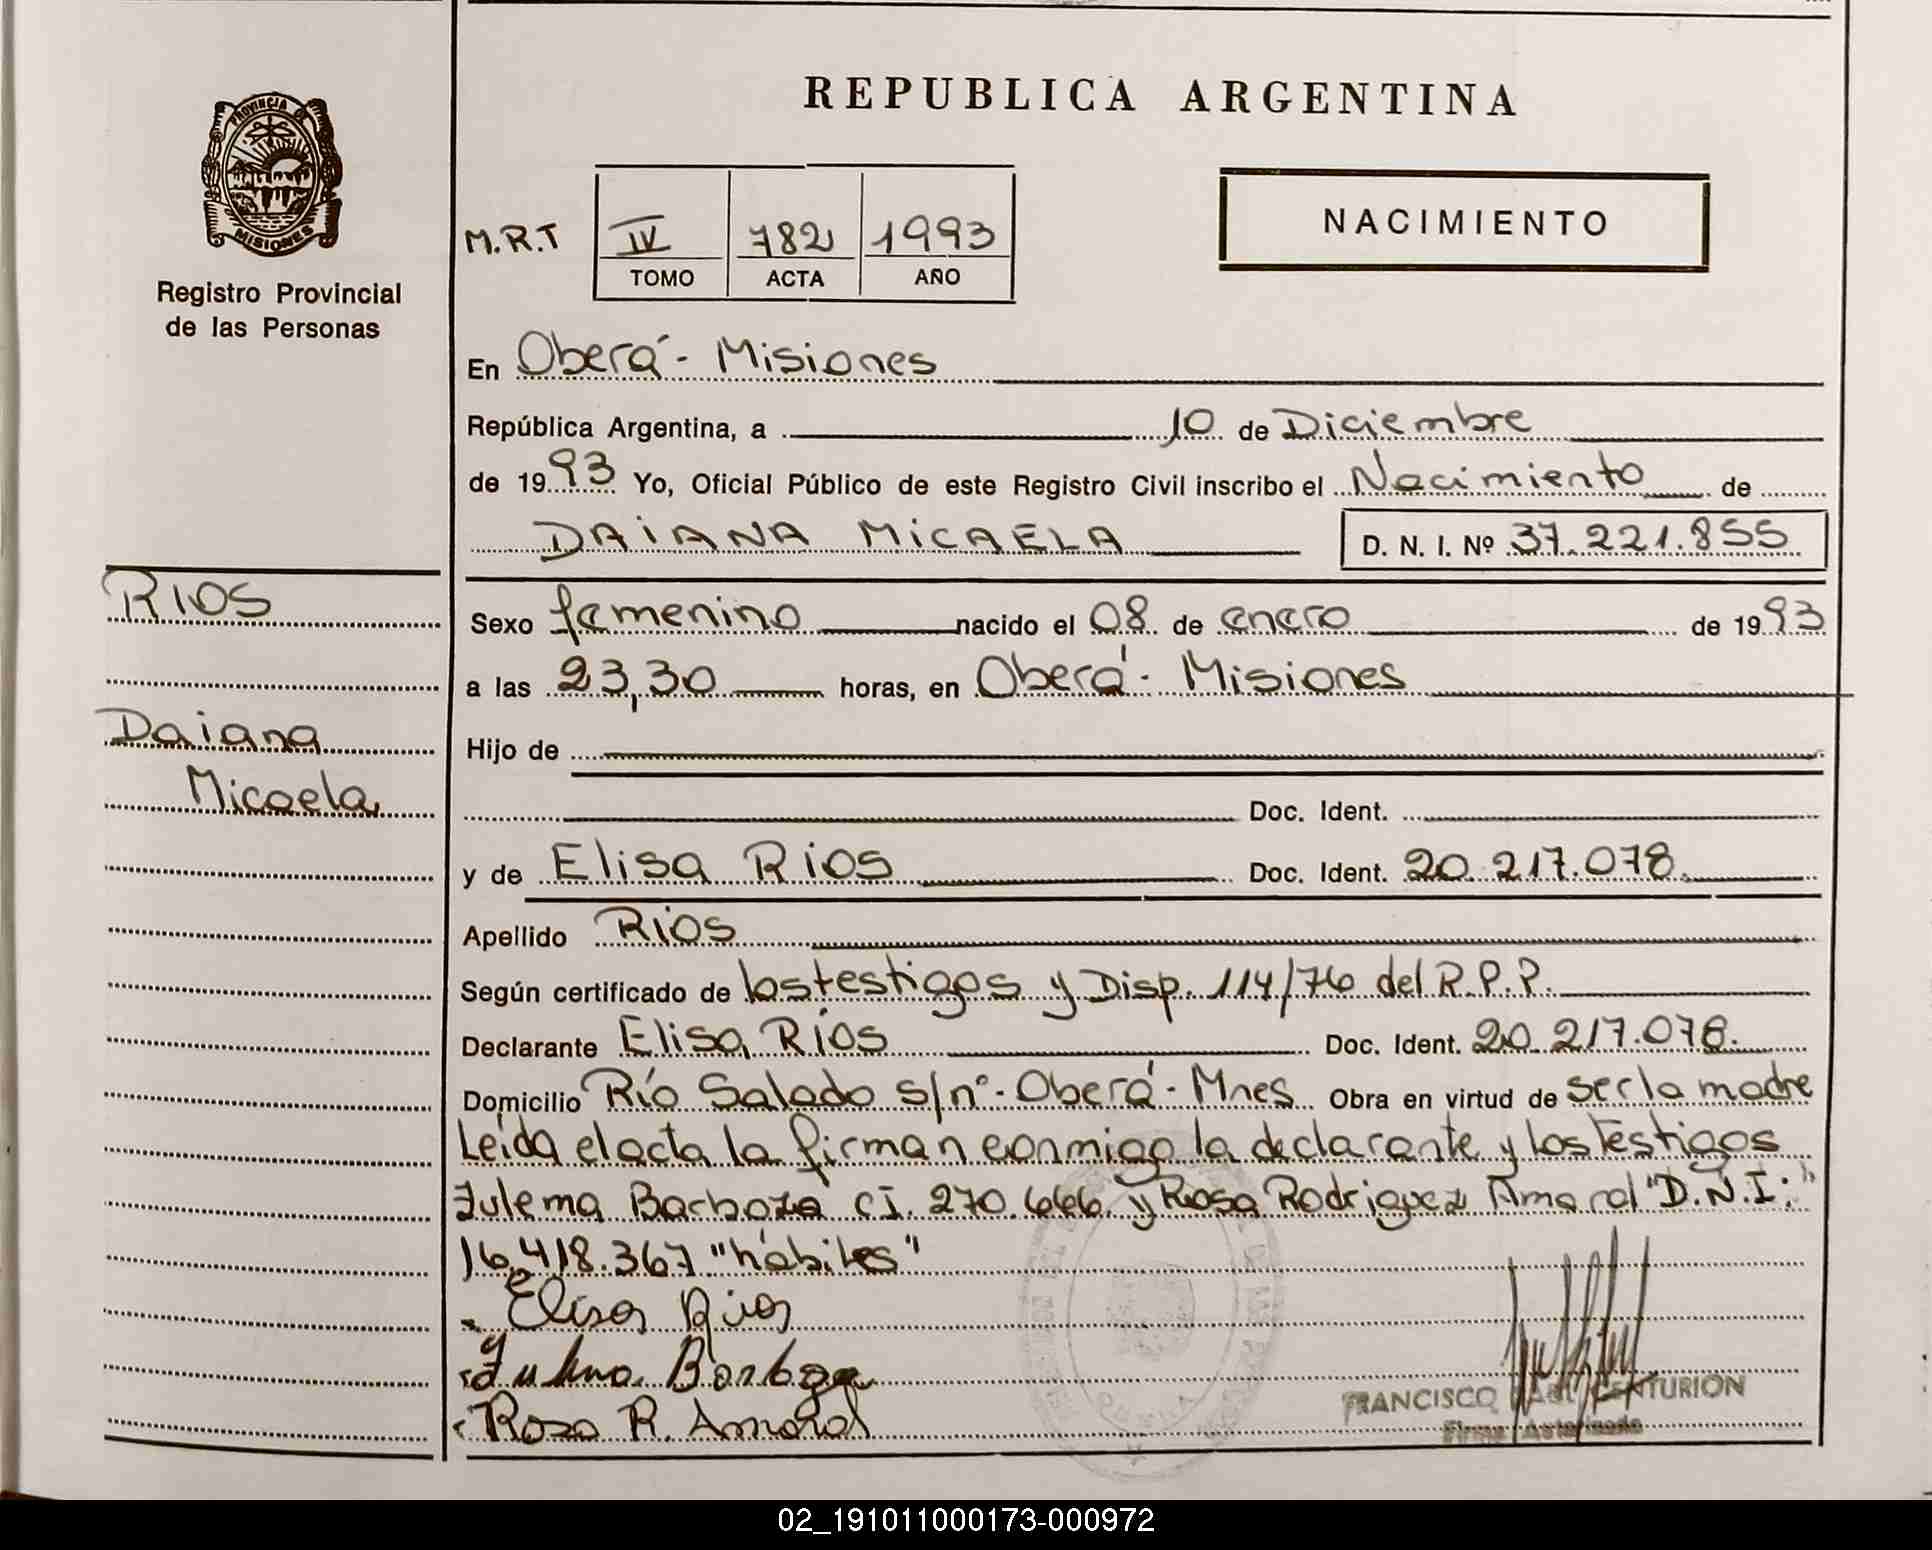 REPUBLICA ARGENTINA
PROVINCIA DE
MISIONES
Registro Provincial
de las Personas
NACIMIENTO
M.R.T IV 782 1993
TOMO ACTA AÑO
En Oberá - Misiones
República Argentina, a 10 de Diciembre
de 1993 Yo, Oficial Público de este Registro Civil inscribo el Nacimiento de
DAIANA MICAELA D. N. I. Nº 37.221.855
RIOS
Daiana
Micaela
Sexo femenino nacido el 08 de enero de 1993
a las 23,30 horas, en Oberá - Misiones
Hijo de
Doc. Ident.
y de Elisa Rios Doc. Ident. 20.217.078.
Apellido Rios
Según certificado de los testigos y Disp. 114/76 del R.P.P.
Declarante Elisa Rios Doc. Ident. 20.217.078.
Domicilio Río Salado s/nº - Oberá - Mnes Obra en virtud de ser la madre
Leida el acta la firman conmigo la declarante y los testigos
Zulema Barboza CI. 270.666. y Rosa Rodriguez Amaral "D.N.I:"
16.418.367 "hábiles"
Elisa Rios
Zulma Borboza
Rosa R. Amaral
FRANCISCO CENTURION
Firma Autorizada
02_191011000173-000972